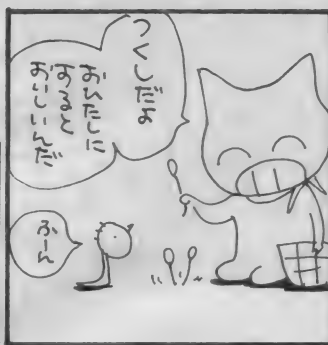 つくしだよ
おひたしに
すると
おいしいんだ
ふーん